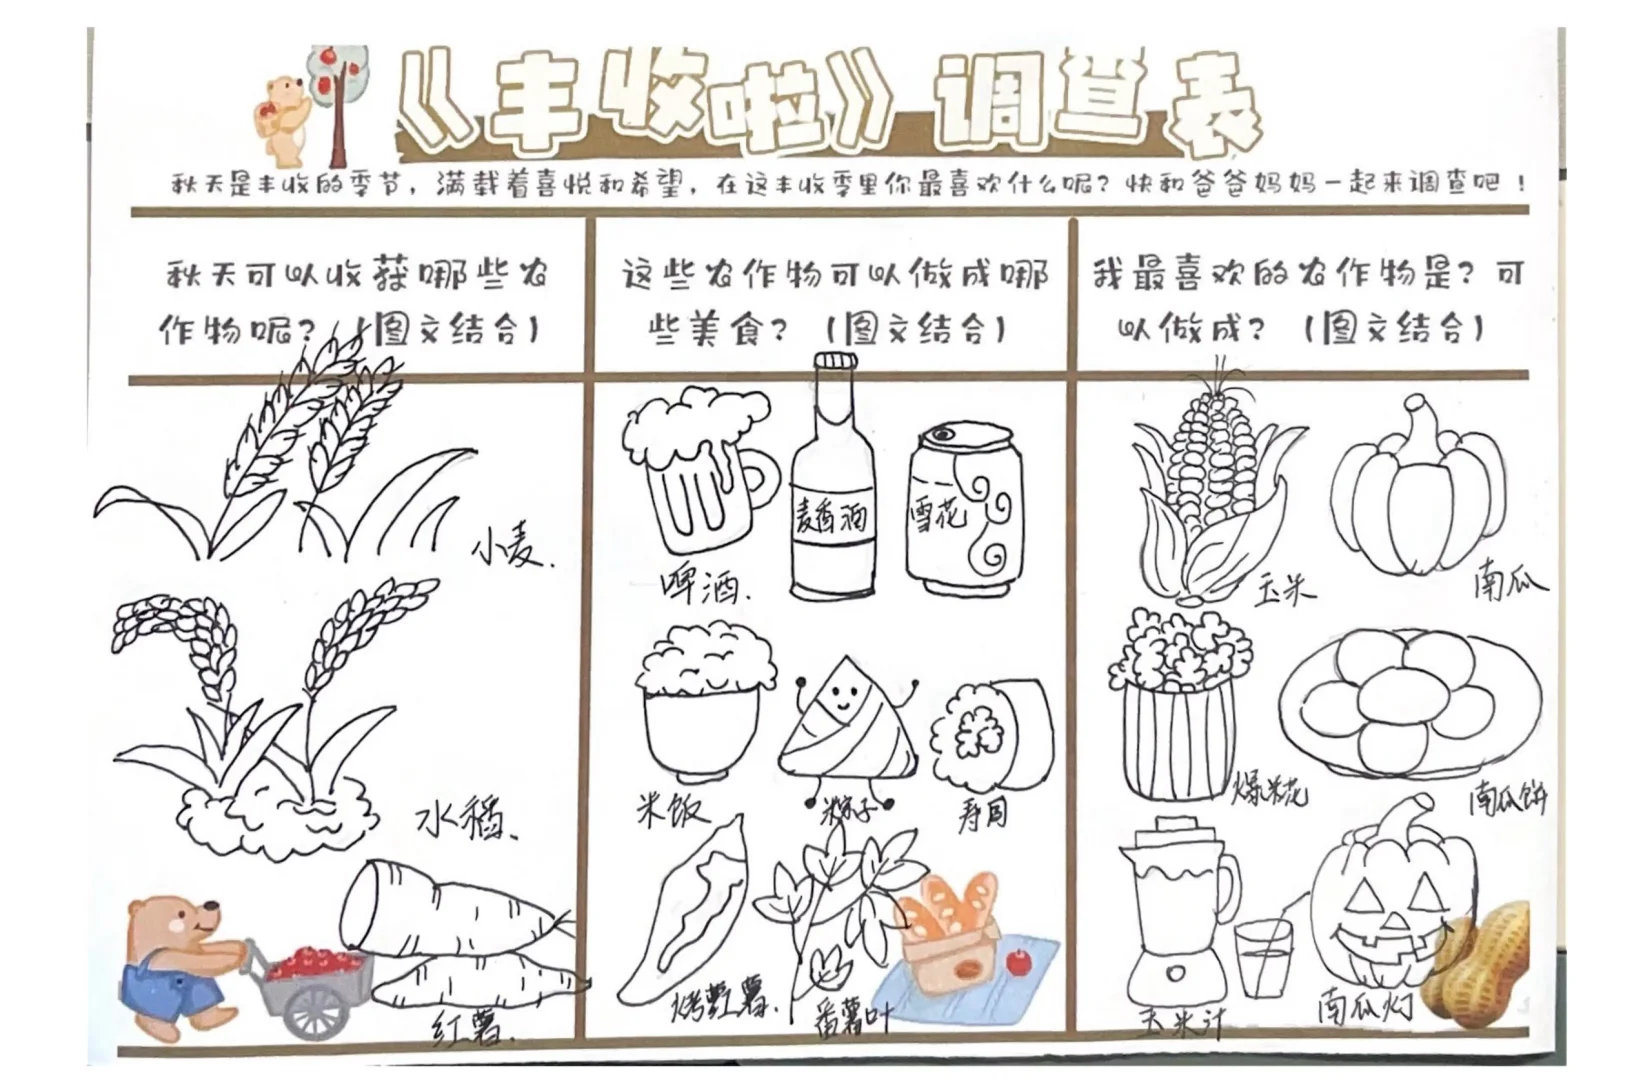 《丰收啦》调查表
秋天是丰收的季节，满载着喜悦和希望，在这丰收季里你最喜欢什么呢？快和爸爸妈妈一起来调查吧！
秋天可以收获哪些农
作物呢？（图文结合）
这些农作物可以做成哪
些美食？（图文结合）
我最喜欢的农作物是？可
以做成？（图文结合）
小麦.
水稻.
红薯.
麦香酒
雪花
啤酒.
米饭
粽子
寿司
烤红薯.
番薯叶
玉米
南瓜
爆米花
南瓜饼
玉米汁
南瓜灯